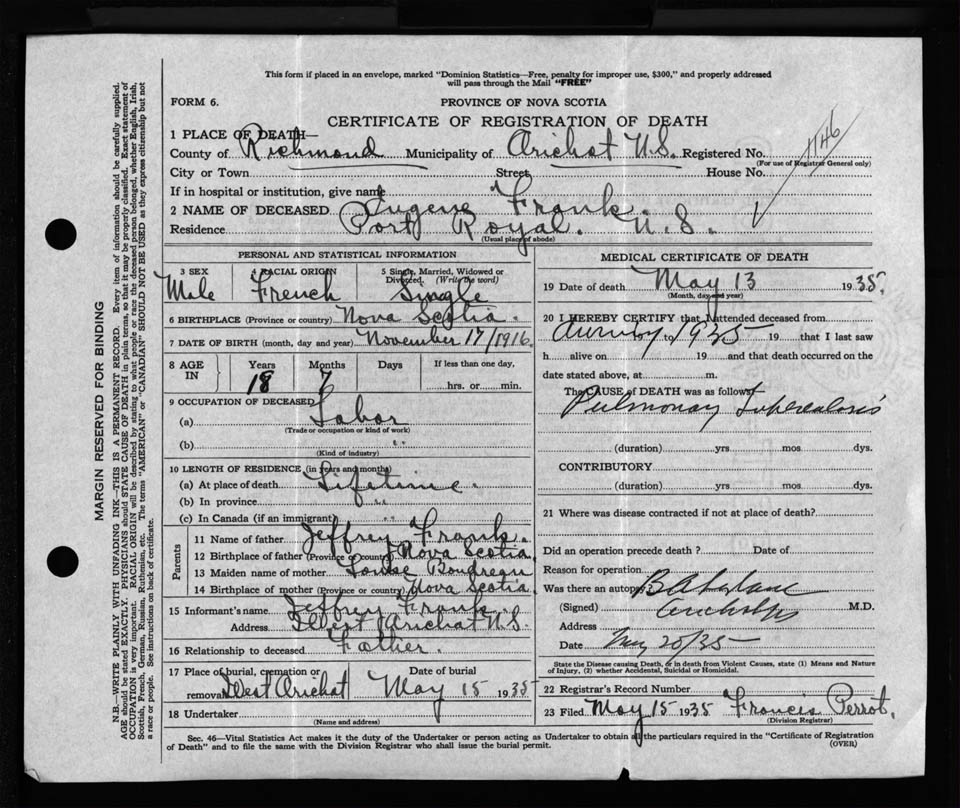 This form if placed in an envelope, marked "Dominion Statistics—Free, penalty for improper use, $300," and properly addressed
will pass through the Mail "FREE"
FORM 6. PROVINCE OF NOVA SCOTIA
CERTIFICATE OF REGISTRATION OF DEATH
1146
1 PLACE OF DEATH—
County of Richmond Municipality of Arichat N.S. Registered No.
(For use of Registrar General only)
City or Town Street House No.
If in hospital or institution, give name
2 NAME OF DECEASED Eugene Frank.
Residence Port Royal. N.S.
(Usual place of abode)
PERSONAL AND STATISTICAL INFORMATION
3 SEX 4 RACIAL ORIGIN 5 Single, Married, Widowed or Divorced. (Write the word)
Male French Single
6 BIRTHPLACE (Province or country) Nova Scotia.
7 DATE OF BIRTH (month, day and year) November 17/1916.
8 AGE IN Years Months Days If less than one day,
18 7 hrs. or min.
9 OCCUPATION OF DECEASED
(a) Labor
(Trade or occupation or kind of work)
(b) " "
(Kind of industry)
10 LENGTH OF RESIDENCE (in years and months)
(a) At place of death Lifetime.
(b) In province " "
(c) In Canada (if an immigrant) " "
Parents
11 Name of father Jeffrey Frank.
12 Birthplace of father (Province or country) Nova Scotia
13 Maiden name of mother Louise
14 Birthplace of mother (Province or country) Nova Scotia
15 Informant's name Jeffrey Frank.
Address West Arichat N.S.
16 Relationship to deceased Father.
17 Place of burial, cremation or removal Date of burial
West Arichat May 15 1935
18 Undertaker
(Name and address)
MEDICAL CERTIFICATE OF DEATH
19 Date of death May 13 1935.
(Month, day and year)
20 I HEREBY CERTIFY that I attended deceased from
to 1935 19 that I last saw
h alive on 19 and that death occurred on the
date stated above, at m.
The CAUSE of DEATH was as follows:
Pulmonary Tuberculosis
(duration) yrs mos dys.
CONTRIBUTORY
(duration) yrs. mos dys.
21 Where was disease contracted if not at place of death?
Did an operation precede death? Date of
Reason for operation
Was there an autopsy
(Signed) M.D.
Address Arichat
Date May 20/35
State the Disease causing Death, or in death from Violent Causes, state (1) Means and Nature
of Injury, (2) whether Accidental, Suicidal or Homicidal.
22 Registrar's Record Number
23 Filed May 15 1935 Francis Perrot.
(Division Registrar)
Sec. 46—Vital Statistics Act makes it the duty of the Undertaker or person acting as Undertaker to obtain all the particulars required in the "Certificate of Registration
of Death" and to file the same with the Division Registrar who shall issue the burial permit.
(OVER)
MARGIN RESERVED FOR BINDING
N.B.—WRITE PLAINLY WITH UNFADING INK—THIS IS A PERMANENT RECORD. Every item of information should be carefully supplied.
AGE should be stated EXACTLY. PHYSICIANS should STATE CAUSE OF DEATH in plain terms, so that it may be properly classified. Exact statement of
OCCUPATION is very important. RACIAL ORIGIN will be described by stating to what people or race the deceased person belonged, whether English, Irish,
Scottish, French, German, Russian, Ruthenian, etc. The terms "AMERICAN" or "CANADIAN" SHOULD NOT BE USED as they express citizenship but not
a race or people. See instructions on back of certificate.